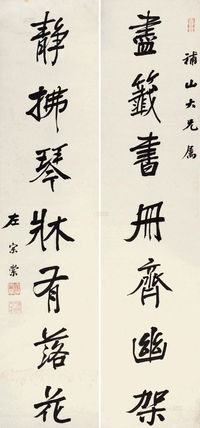 補山大兄属
盡籤書冊齊幽架
静拂琴牀有落花
左宗棠